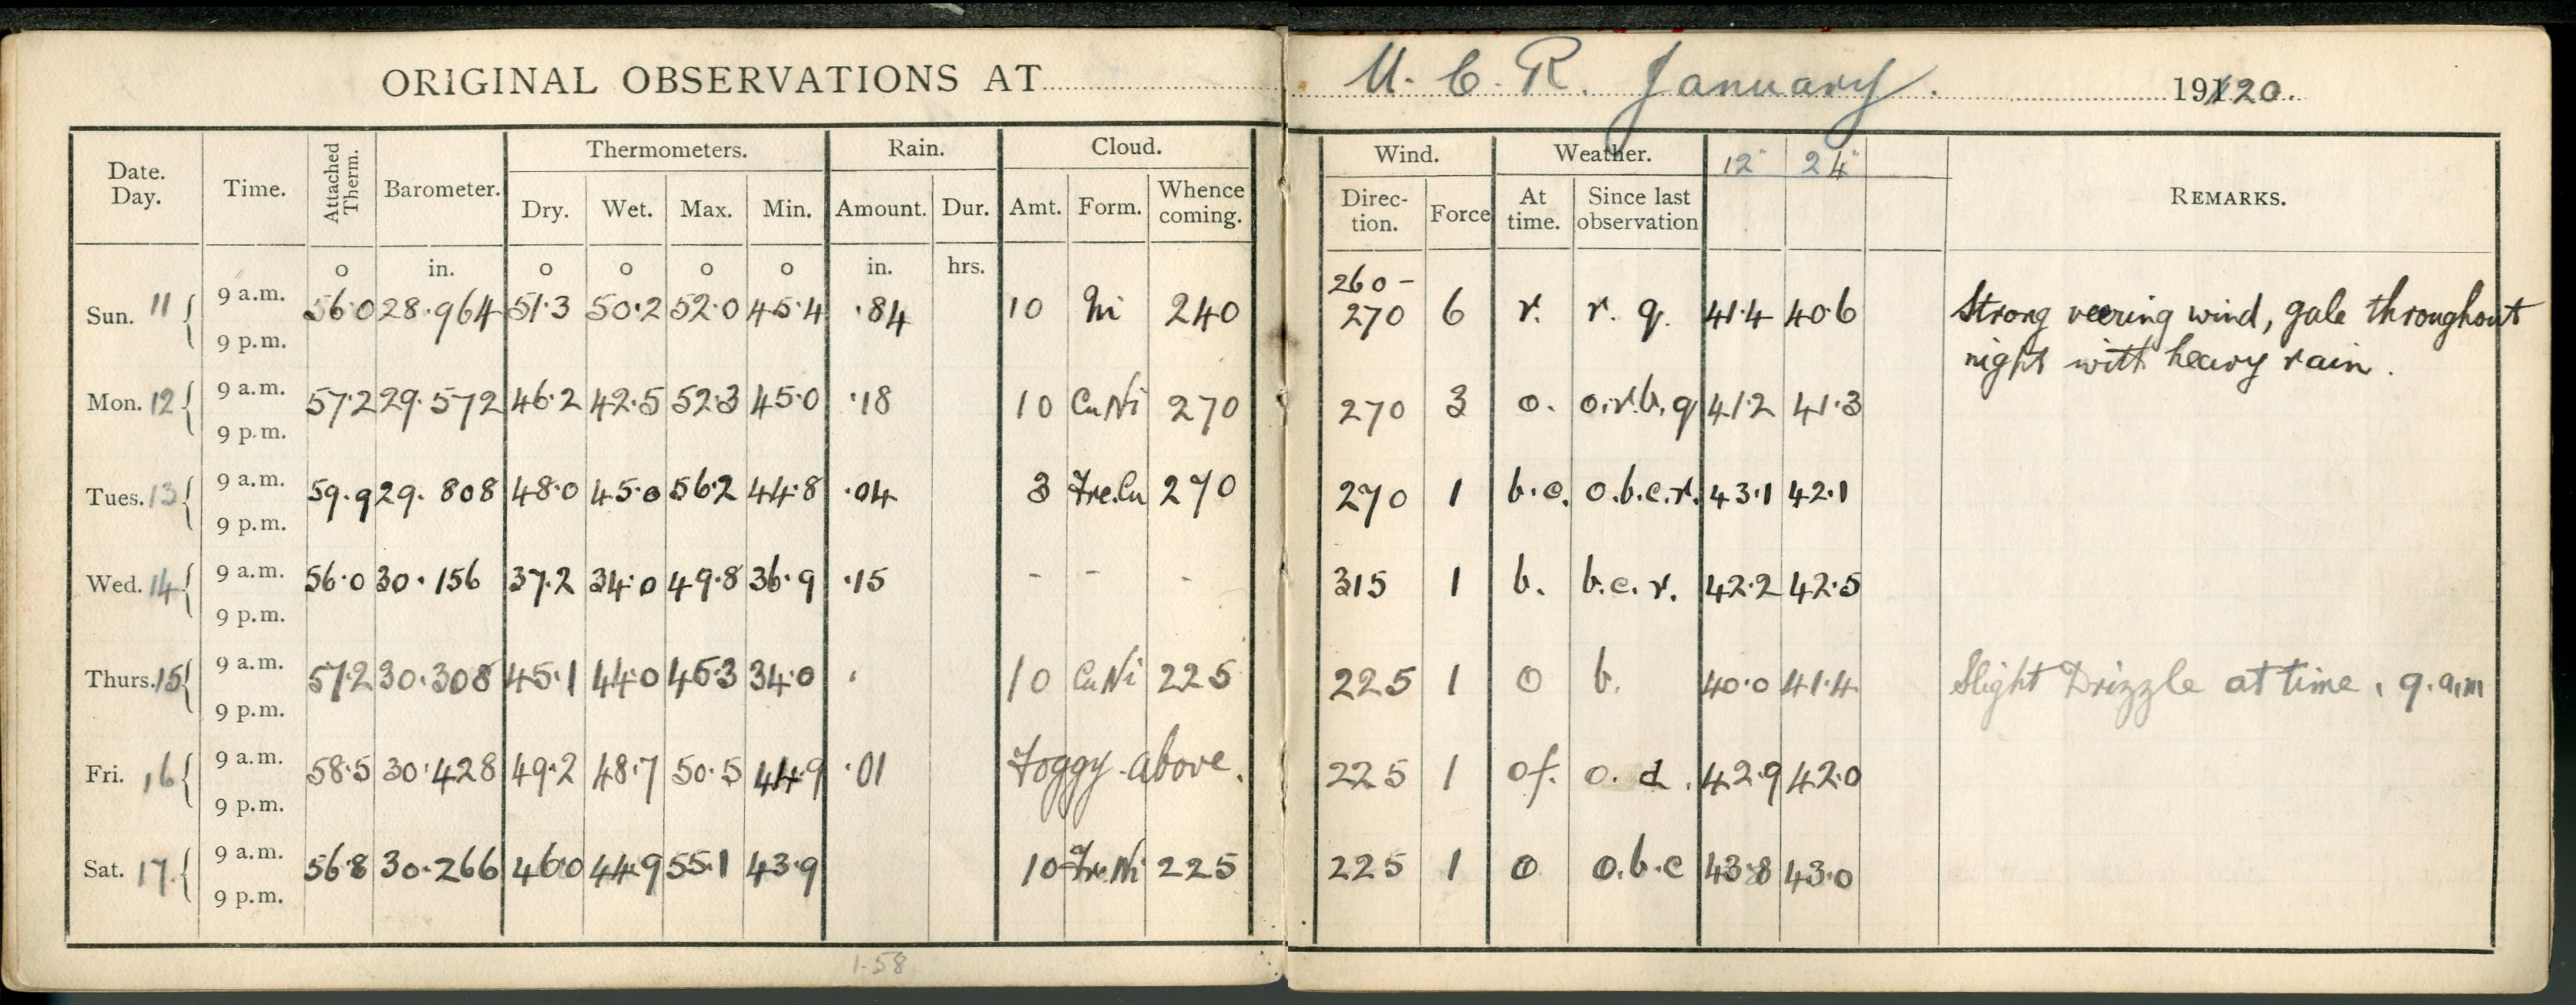 ORIGINAL OBSERVATIONS AT U. C. R. January. 19120.
Date. Day. Time. Attached Therm. Barometer. Thermometers. Rain. Cloud. Wind. Weather. 12" 24" REMARKS.
Dry. Wet. Max. Min. Amount. Dur. Amt. Form. Whence coming. Direc- tion. Force At time. Since last observation
o in. o o o o in. hrs.
Sun. 11 9 a.m. 56·0 28·964 51·3 50·2 52·0 45·4 ·84 10 Ni 240 260- 270 6 r. r. q. 41·4 40·6 Strong veering wind, gale throughout
9 p.m. night with heavy rain.
Mon. 12 9 a.m. 57·2 29·572 46·2 42·5 52·3 45·0 ·18 10 Cu Ni 270 270 3 o. o.r.b.q 41·2 41·3
9 p.m.
Tues. 13 9 a.m. 59·9 29·808 48·0 45·0 56·2 44·8 ·04 3 Fre.Cu 270 270 1 b.c. o.b.c.r. 43·1 42·1
9 p.m.
Wed. 14 9 a.m. 56·0 30·156 37·2 34·0 49·8 36·9 ·15 - - - 315 1 b. b.c.r. 42·2 42·5
9 p.m.
Thurs. 15 9 a.m. 57·2 30·308 45·1 44·0 45·3 34·0 · 10 Cu Ni 225 225 1 O b. 40·0 41·4 Slight Drizzle at time. 9.a.m
9 p.m.
Fri. 16 9 a.m. 58·5 30·428 49·2 48·7 50·5 44·9 ·01 Foggy above. 225 1 of. o. d. 42·9 42·0
9 p.m.
Sat. 17. 9 a.m. 56·8 30·266 46·0 44·9 55·1 43·9 10 Fre.Ni 225 225 1 O o.b.c 43·8 43·0
9 p.m.
1·58